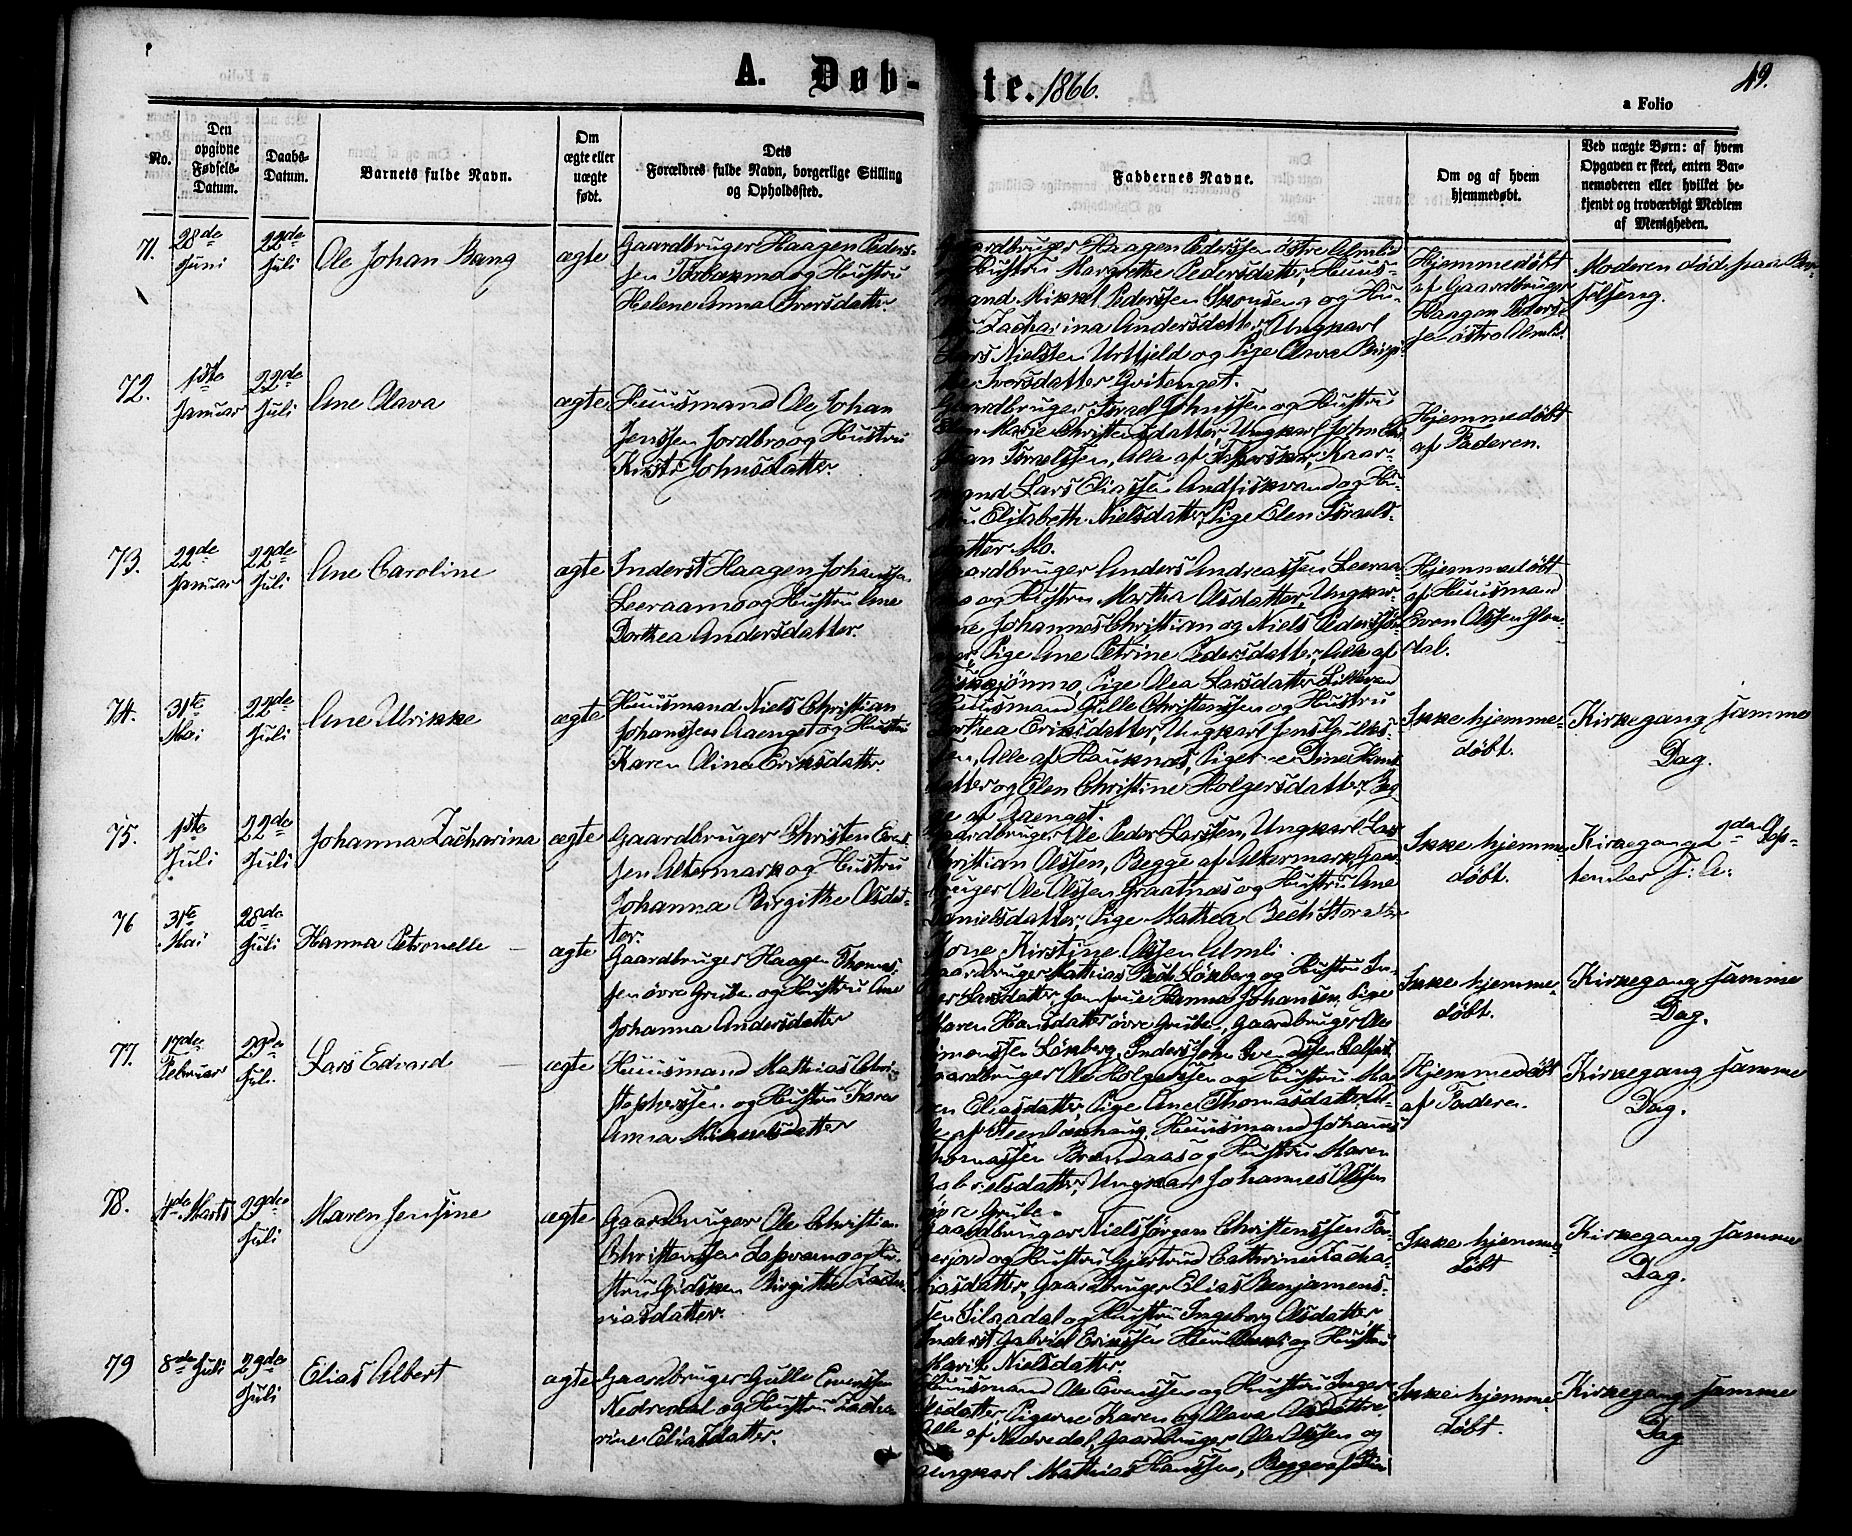 A. Døb-te. 1866.
49.
a Folio
No.
Den opgivne Fødsels-Datum.
Daabs-Datum.
Barnets fulde Navn.
Om ægte eller uægte født.
Dets Forældres fulde Navn, borgerlige Stilling og Opholdssted.
Faddernes Navne.
Om og af hvem hjemmedøbt.
Ved uægte Børn: af hvem Opgaven er skeet, enten Barnemoderen eller hvilket bekjendt og troværdigt Medlem af Menigheden.
71.
28de Juni
22de Juli
Ole Johan Bang
ægte
Gaardbruger Haagen Peders-
sen og Hustru
Helene Anna Iversdatter.
Gaardbruger Haagen Pederssen østre Almlid
og Hustru Margrethe Pedersdatter, Huus-
mand Mikkel Pederssen og Hu-
stru Zacharina Andersdatter, Ungkarl
Lars Nielssen Urtfjeld og Pige Olava Birgi-
the Iversdatter Qvitenget.
Hjemmedøbt
af Gaardbruger
Haagen Peders-
sen østre Almlid.
Moderen død paa Bar-
selseng.
72.
1ste Januar
22de Juli
Ane Olava
ægte
Huusmand Ole Johan
Jenssen Jordbro og Hustru
Kirsti Johnsdatter.
Gaardbruger Israel Johnssen og Hustru
Elen Marie Christensdatter, Ungkarl John
Israelssen, Alle af Kaar-
mand Lars Eliassen Andfiskvand og Hu-
stru Elisabeth Nielsdatter, Pige Elen Israels-
datter Mo.
Hjemmedøbt
af Faderen.
73.
22de Januar
22de Juli
Ane Caroline
ægte
Inderst Haagen Johanssen
Leeraamo og Hustru Ane
Dorthea Andersdatter.
Gaardbruger Anders Andreassen Leeraa-
mo og Hustru Martha Olsdatter, Ungkar-
lene Johannes Christian og Niels Peder
Pige Ane Petrine Pedersdatter, Alle af
Pige Olea Larsdatter
Hjemmedøbt
af Huusmand
Even Olssen
dal.
74.
31te Mai
22de Juli
Ane Ulrikke
ægte
Huusmand Niels Christian
Johanssen Aaenget og Hustru
Karen Olina Eriksdatter.
Huusmand Gulle Christenssen og Hustru
Dorthea Eriksdatter, Ungkarl Jens Gulles-
sen, Alle af Hauknæs, Piger-e Dine
datter og Elen Christine Holgersdatter, Beg-
ge af Aaenget.
Ikke hjemme-
døbt.
Kirkegang samme
Dag.
75.
1ste Juli
22de Juli
Johanna Zacharina
ægte
Gaardbruger Christen
sen Altermark og Hustru
Johanna Birgithe Olsdat-
ter.
Gaardbruger Ole Peder Larssen, Ungkarl Lars
Christian Olssen, Begge af Altermark, Gaard-
bruger Ole Olssen Graatnæs og Hustru Ane
Danielsdatter, Pige Mathea Bech
Kone Kirstine Olssen Almli.
Ikke hjemme-
døbt.
Kirkegang 2den Sep-
tember
76
31te Mai
28de Juli
Hanna Petronelle
ægte
Gaardbruger Haagen Thomas-
sen øvre Gruben og Hustru Ane
Johanna Andersdatter
Gaardbruger Mathias Løkberg og Hustru In-
ger Larsdatter, Jomfrue Hanna Johansen, Pige
Maren Hansdatter øvre Gruben, Gaardbruger Ole
Simonssen Løkberg, Inderst John
Ikke hjemme-
døbt.
Kirkegang samme
Dag.
77.
17de Februar
29de Juli
Lars Edvard
ægte
Huusmand Mathias Chri-
stophersen og Hustru Karen
Anna Mikkelsdatter
Gaardbruger Ole Holgerssen og Hustru Ma-
ren Eliasdatter, Pige Ane Thomasdatter, Al-
le af Huusmand Johannes
Thomassen Brendaas og Hustru Maren
Gabrielsdatter, Ungkarl Johannes Olssen
øvre Gruben.
Hjemmedøbt
af Faderen.
Kirkegang samme
Dag.
78.
4de Marts
29de Juli
Maren Jensine
ægte
Gaardbruger Ole Christian
Christenssen og Hu-
stru Gidsken Birgithe Zacha-
riasdatter.
Gaardbruger Niels Jørgen Christenssen
og Hustru Gjertrud Cathrine Zacha-
riasdatter, Gaardbruger Elias Benjamins-
sen og Hustru Ingeborg Olsdatter,
Inderst Gabriel Erikssen og Hustru
Marit Nielsdatter.
Ikke hjemme-
døbt
Kirkegang samme
Dag.
79
8de Juli
29de Juli
Elias Albert
ægte
Gaardbruger Gulle Evenssen
Nedredal og Hustru Zacha-
rine Eliasdatter.
Huusmand Ole Evenssen og Hustru Inger
Olsdatter, Pigerne Karen og Olava Olsdøttre,
Alle af Nedredal, Gaardbruger Ole Olssen og
Ungkarl Mathias Hanssen, Begge af
Ikke hjemme-
døbt.
Kirkegang samme
Dag